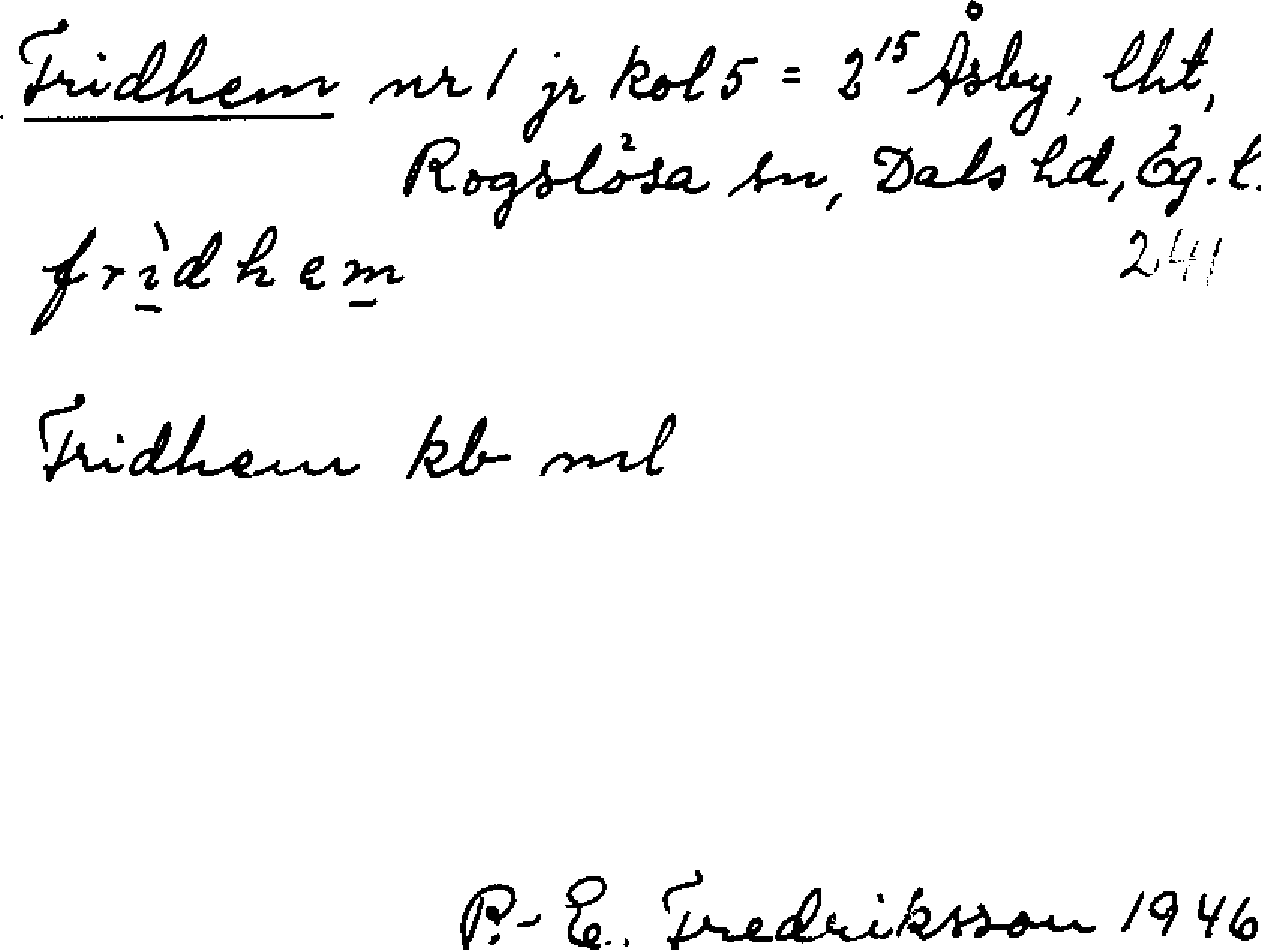 Fridhem nr 1 jr kol 5 = 2¹⁵ Åsby, lht,
Rogslösa sn, Dals hd, Ög. l.
241
frìdhem
Fridhem kb ml
P.-E. Fredriksson 1946